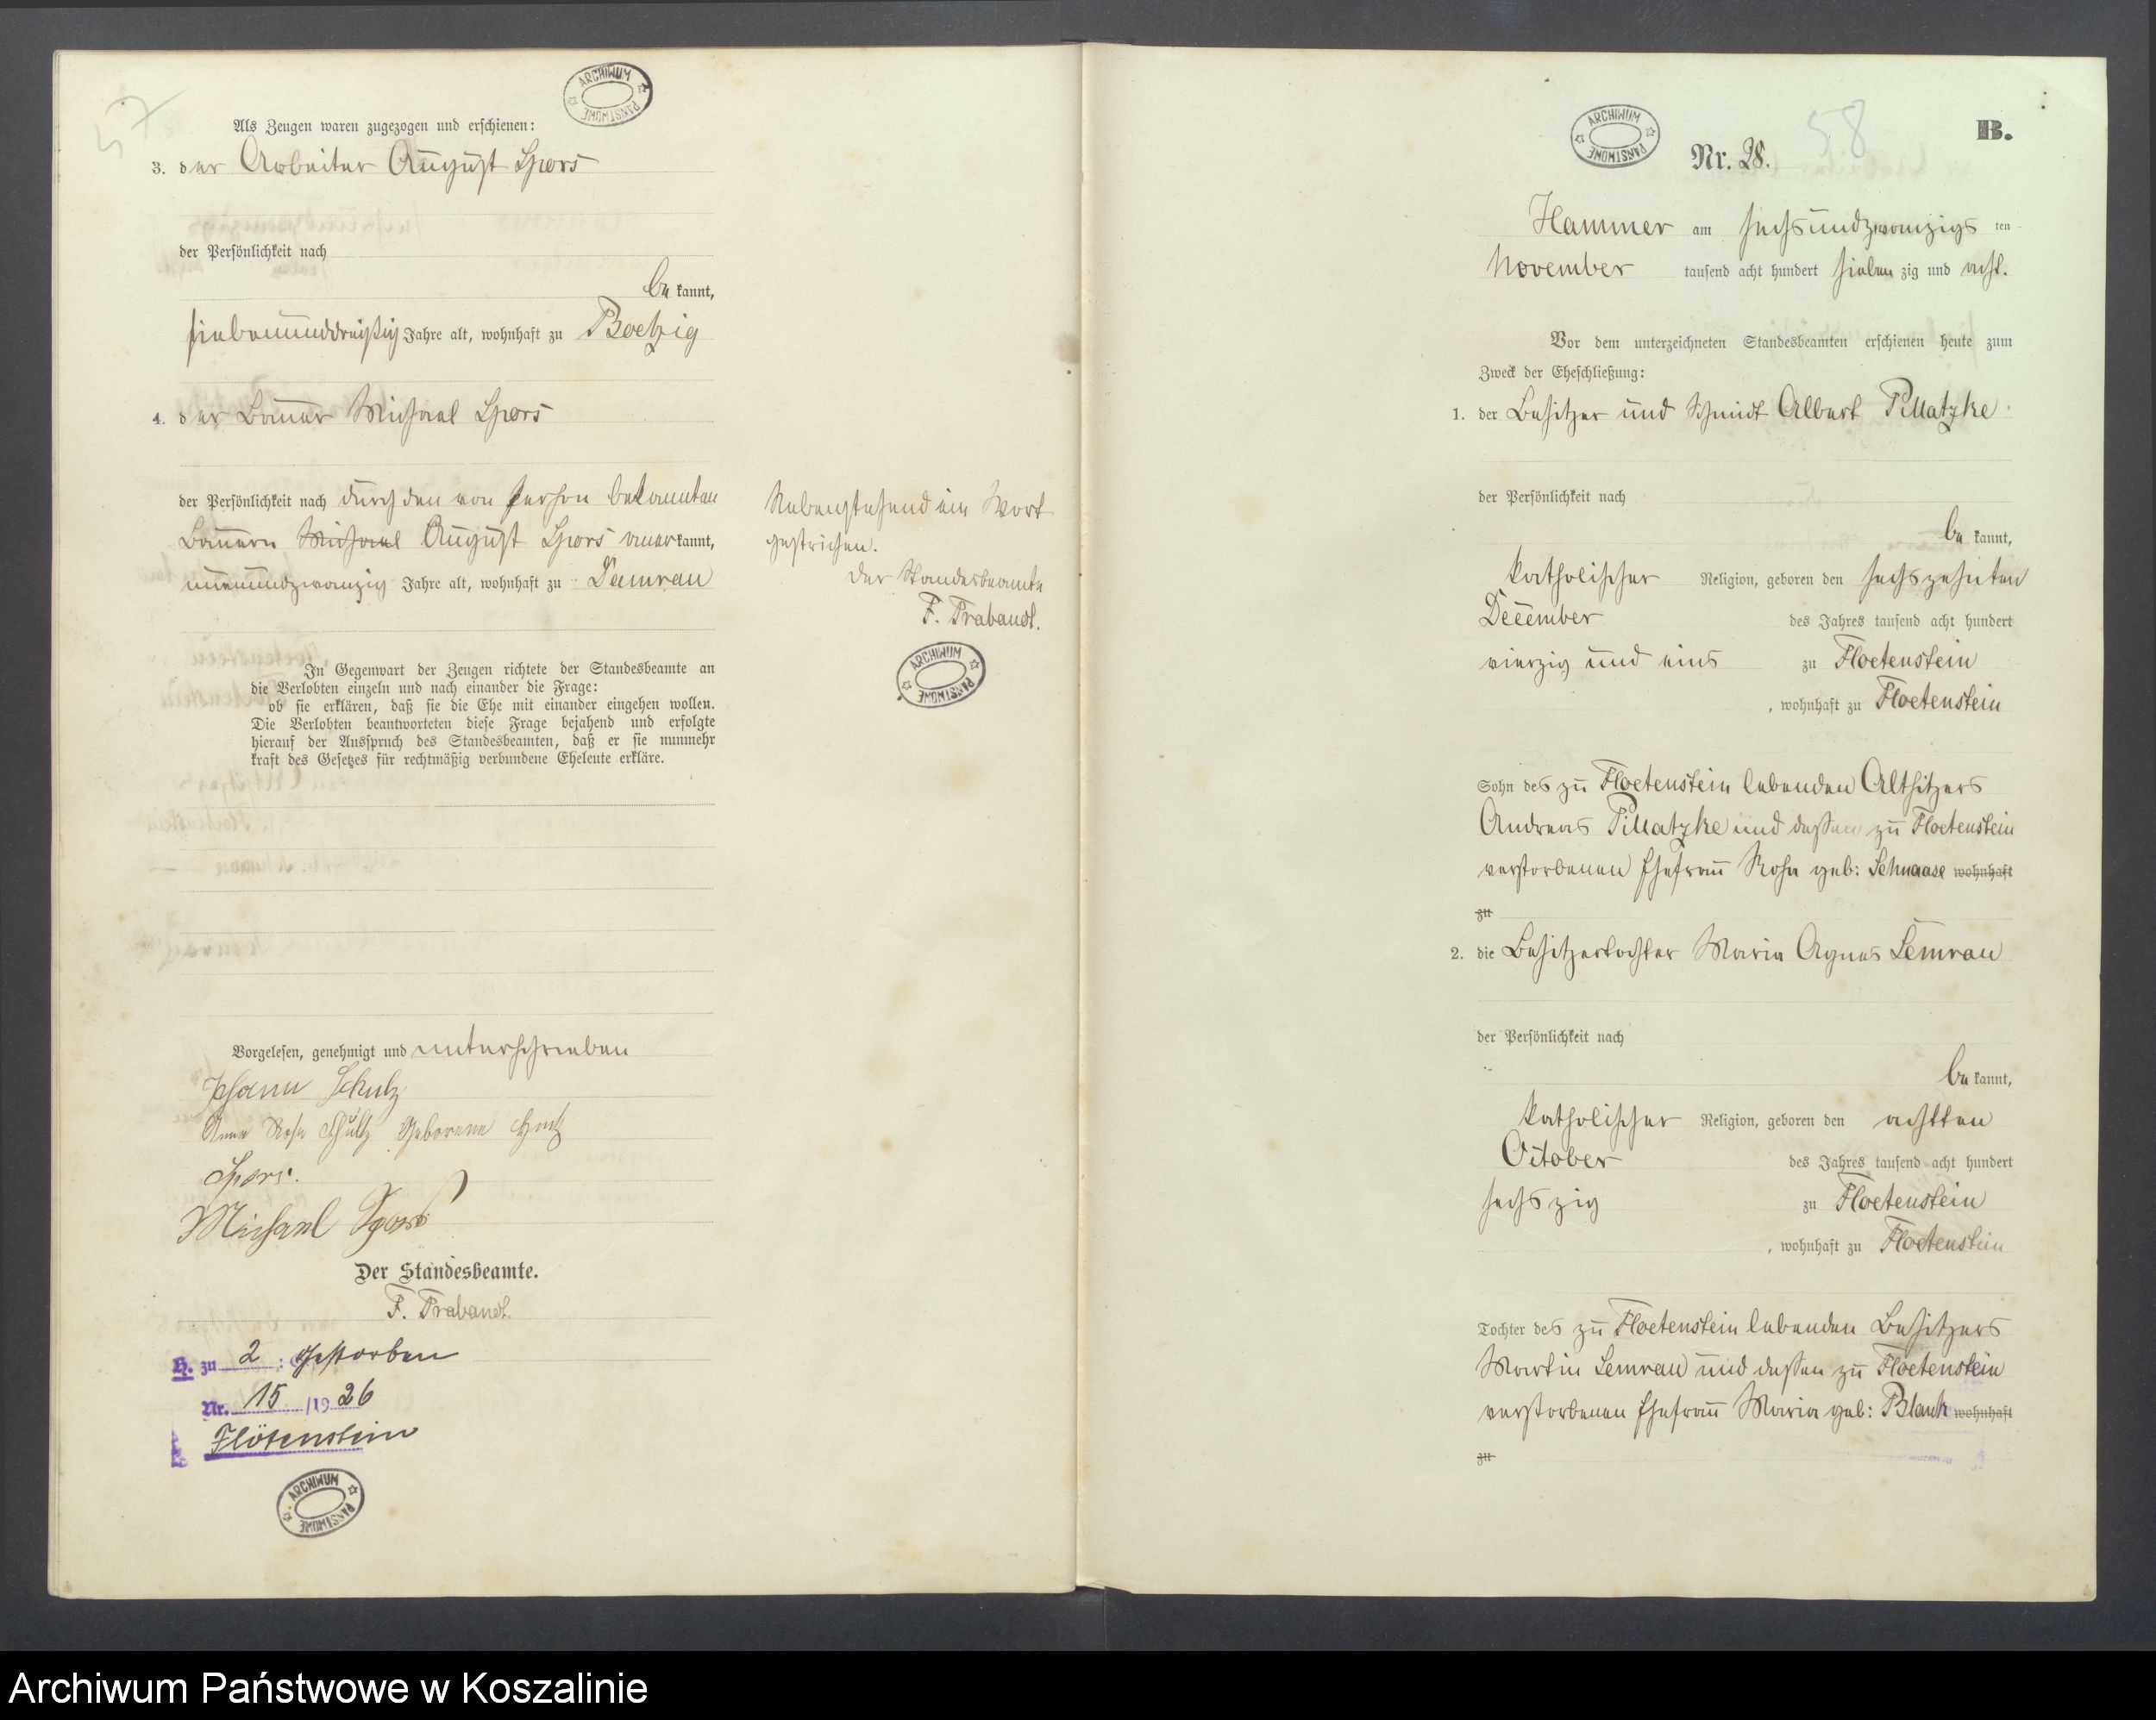 57
ARCHIWUM PAŃSTWOWE
Als Zeugen waren zugezogen und erschienen:
3. der Arbeiter August Spors
der Persönlichkeit nach
bekannt,
siebenunddreißig Jahre alt, wohnhaft zu Boetzig
4. der Bauer Michael Spors
der Persönlichkeit nach durch den von Person bekannten
Bauern Michael August Spors anerkannt,
neunundzwanzig Jahre alt, wohnhaft zu Damrau
Nebenstehend ein Wort
gestrichen.
Der Standesbeamte
F. Trabandt.
ARCHIWUM PAŃSTWOWE
In Gegenwart der Zeugen richtete der Standesbeamte an
die Verlobten einzeln und nach einander die Frage:
ob sie erklären, daß sie die Ehe mit einander eingehen wollen.
Die Verlobten beantworteten diese Frage bejahend und erfolgte
hierauf der Ausspruch des Standesbeamten, daß er sie nunmehr
kraft des Gesetzes für rechtmäßig verbundene Eheleute erkläre.
Vorgelesen, genehmigt und unterschrieben
Johann Schulz
Anna Rosa Schultz Geborene
Spors.
Michael Spors
Der Standesbeamte.
F. Trabandt.
H. zu 2 : Gestorben
Nr. 15 /19 26
Flötenstein
ARCHIWUM PAŃSTWOWE
ARCHIWUM PAŃSTWOWE
58
B.
Nr. 28.
Hammer am sechsundzwanzigsten
November tausend acht hundert siebenzig und acht.
Vor dem unterzeichneten Standesbeamten erschienen heute zum
Zweck der Eheschließung:
1. der Besitzer und Schmidt Albert Pillatzke
der Persönlichkeit nach
bekannt,
katholischer Religion, geboren den sechszehnten
December des Jahres tausend acht hundert
vierzig und eins zu Floetenstein
, wohnhaft zu Floetenstein
Sohn des zu Floetenstein lebenden Altsitzers
Andreas Pillatzke und dessen zu Floetenstein
verstorbenen Ehefrau Rosa geb: Schnaase wohnhaft
zu
2. die Besitzertochter Maria Agnes Semrau
der Persönlichkeit nach
bekannt,
katholischer Religion, geboren den achtten
October des Jahres tausend acht hundert
sechszig zu Floetenstein
, wohnhaft zu Floetenstein
Tochter des zu Floetenstein lebenden Besitzers
Martin Semrau und dessen zu Floetenstein
verstorbenen Ehefrau Maria geb: Blank wohnhaft
zu
Archiwum Państwowe w Koszalinie